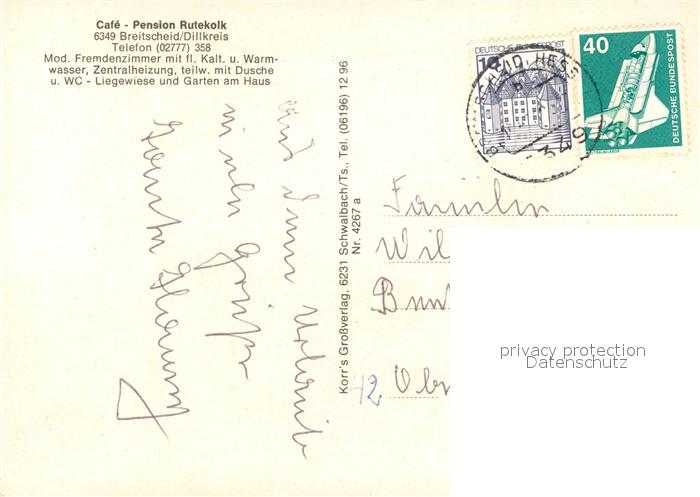 Café - Pension Rutekolk
6349 Breitscheid/Dillkreis
Telefon (02777) 358
Mod. Fremdenzimmer mit fl. Kalt. u. Warm-
wasser, Zentralheizung, teilw. mit Dusche
u. WC - Liegewiese und Garten am Haus
Aus dem Urlaub
viele Grüße
Korr's Großverlag, 6231 Schwalbach/Ts., Tel. (06196) 12 96
Nr. 4267 a
DEUTSCHE BUNDESPOST
10
40
DEUTSCHE BUNDESPOST
Familie
Wil
42
privacy protection
Datenschutz